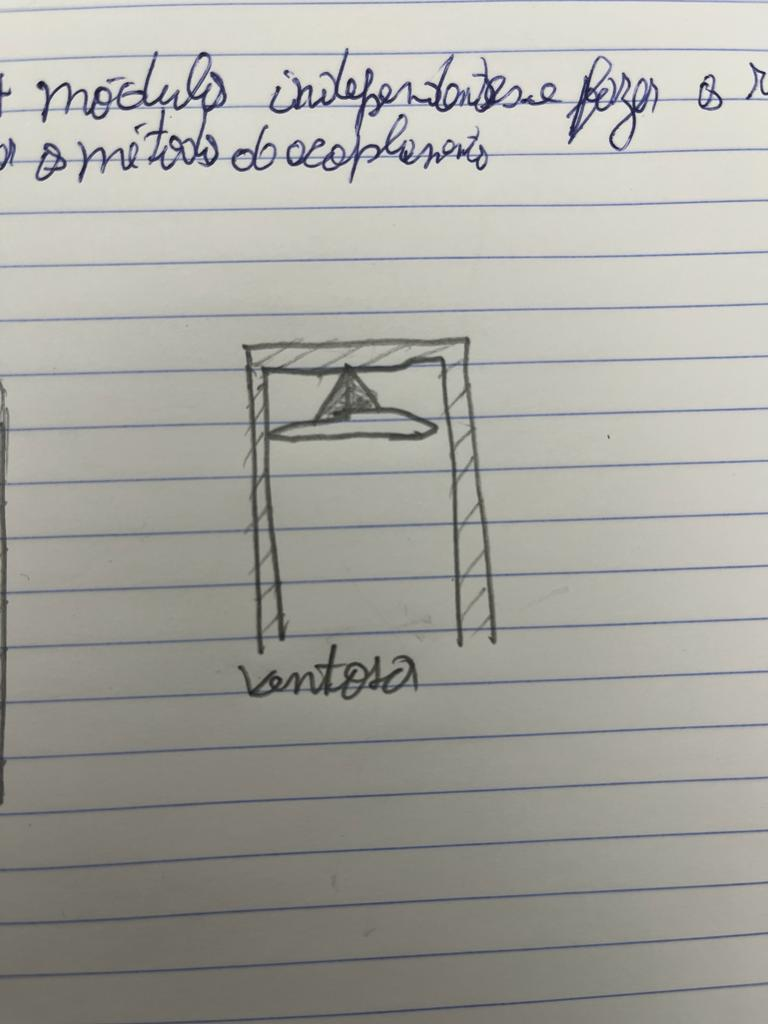 módulo independentes e fazer o
o método do acoplamento
ventosa